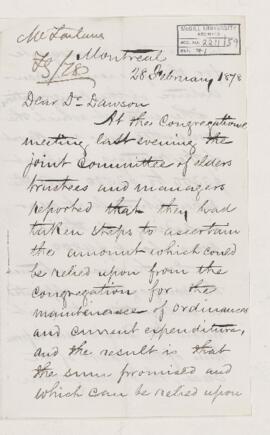 McFarlane
McGILL UNIVERSITY
ARCHIVES
ACC. NO. 2211/59
REF. 1
F3/78
Montreal
28 February 1878
Dear Dr. Dawson
At the Congregational
meeting last evening the
joint Committee of elders
trustees and managers
reported that they had
taken steps to ascertain
the amount which could
be relied upon from the
congregation for the
maintenance of ordinances
and current expenditure,
and the result is that
the sum promised and
which can be relied upon